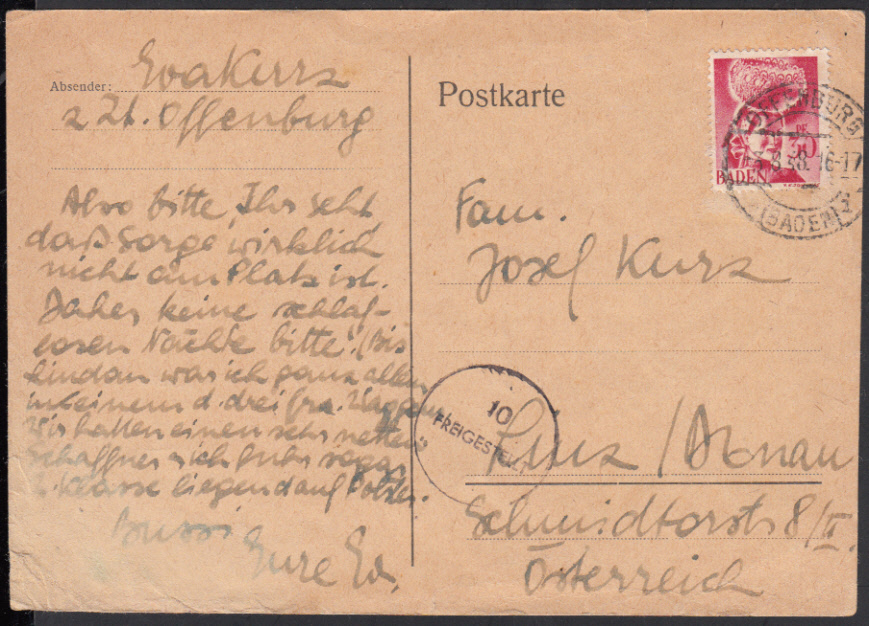 Absender: Eva Kurz
z Zt. Offenburg
Also bitte, Ihr seht,
daß Sorge wirklich
nicht am Platz ist.
Daher keine schlaf-
losen Nächte bitte! (Bis
Lindau war ich ganz allein
in einem d. drei frz. Waggons
Wir hatten einen sehr netten
Schaffner u ich fuhr sogar
Klasse liegend auf Polster.
Bussi
Eure Ev.
Postkarte
PF
30
BADEN
OFFENBURG
8.48.16-17
(BADEN)
Fam.
Josef Kurz
10
FREIGESTELLT
Linz / Donau
Schmidtorstr 8/II.
Österreich